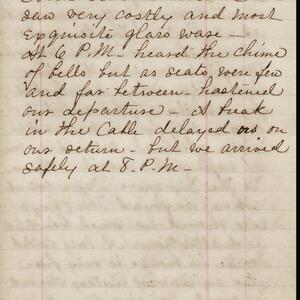 saw very costly and most
exquisite glass ware -
At 6 P.M. heard the chime
of bells but as seats, were few
and far between - hastened
our departure - A break
in the Cable delayed us on
our return - but we arrived
safely at 8. P.M -